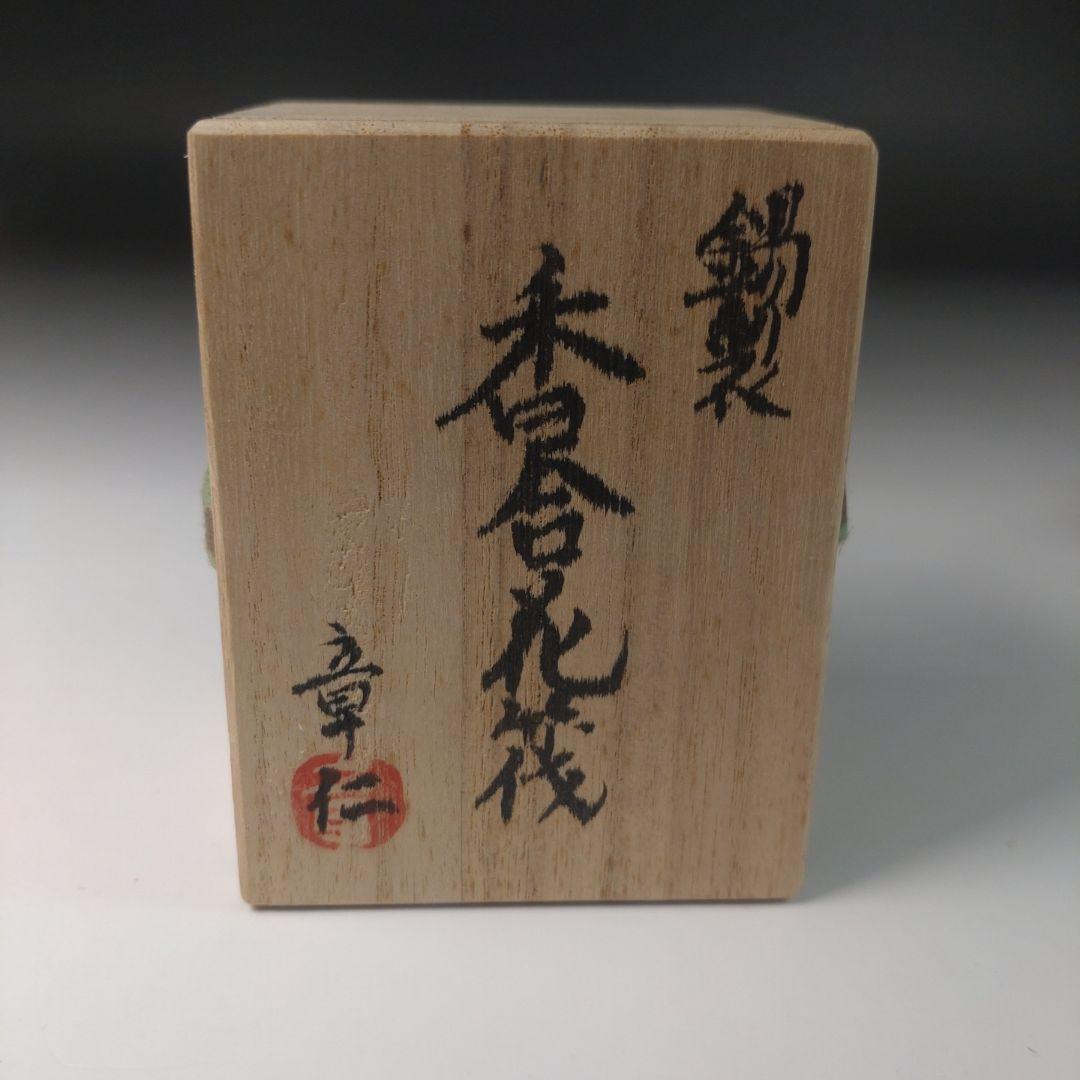 錫製
香合花筏
章仁